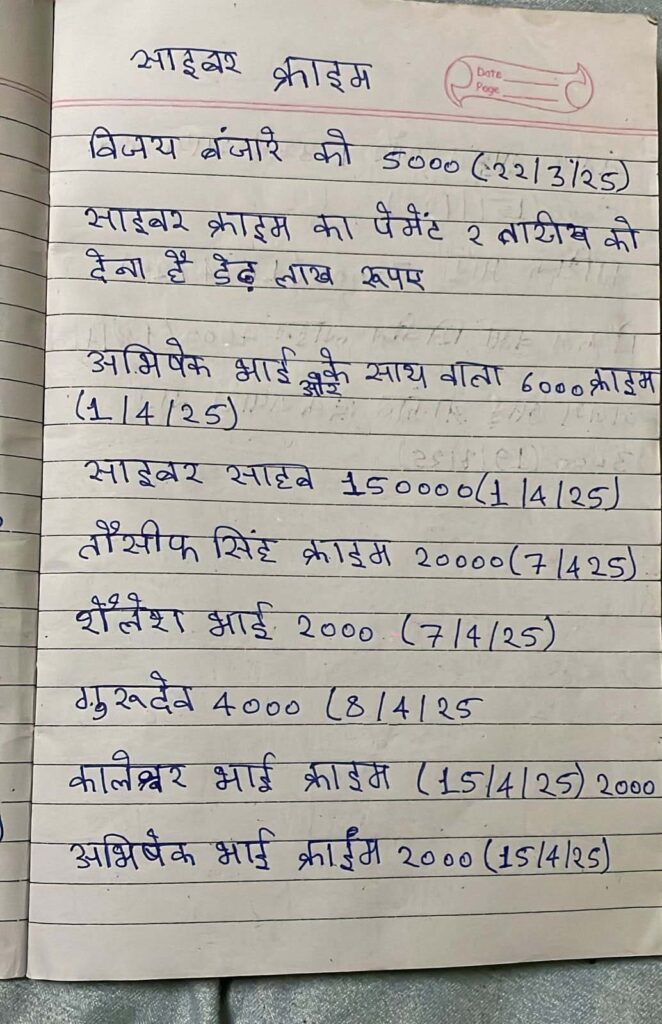 साइबर क्राइम
Date
Page
विजय बंजारे को 5000 (22/3/25)
साइबर क्राइम का पेमेंट २ तारीख को
देना है डेढ़ लाख रूपए
अभिषेक भाई के साथ वाला 6000 क्राइम
और
(1/4/25)
साइबर साहब 150000(1/4/25)
तौसीफ सिंह क्राइम 20000(7/425)
शैलेश भाई 2000 (7/4/25)
गुरूदेव 4000 (8/4/25
कालेश्वर भाई क्राइम (15/4/25) 2000
अभिषेक भाई क्राईम 2000 (15/4/25)